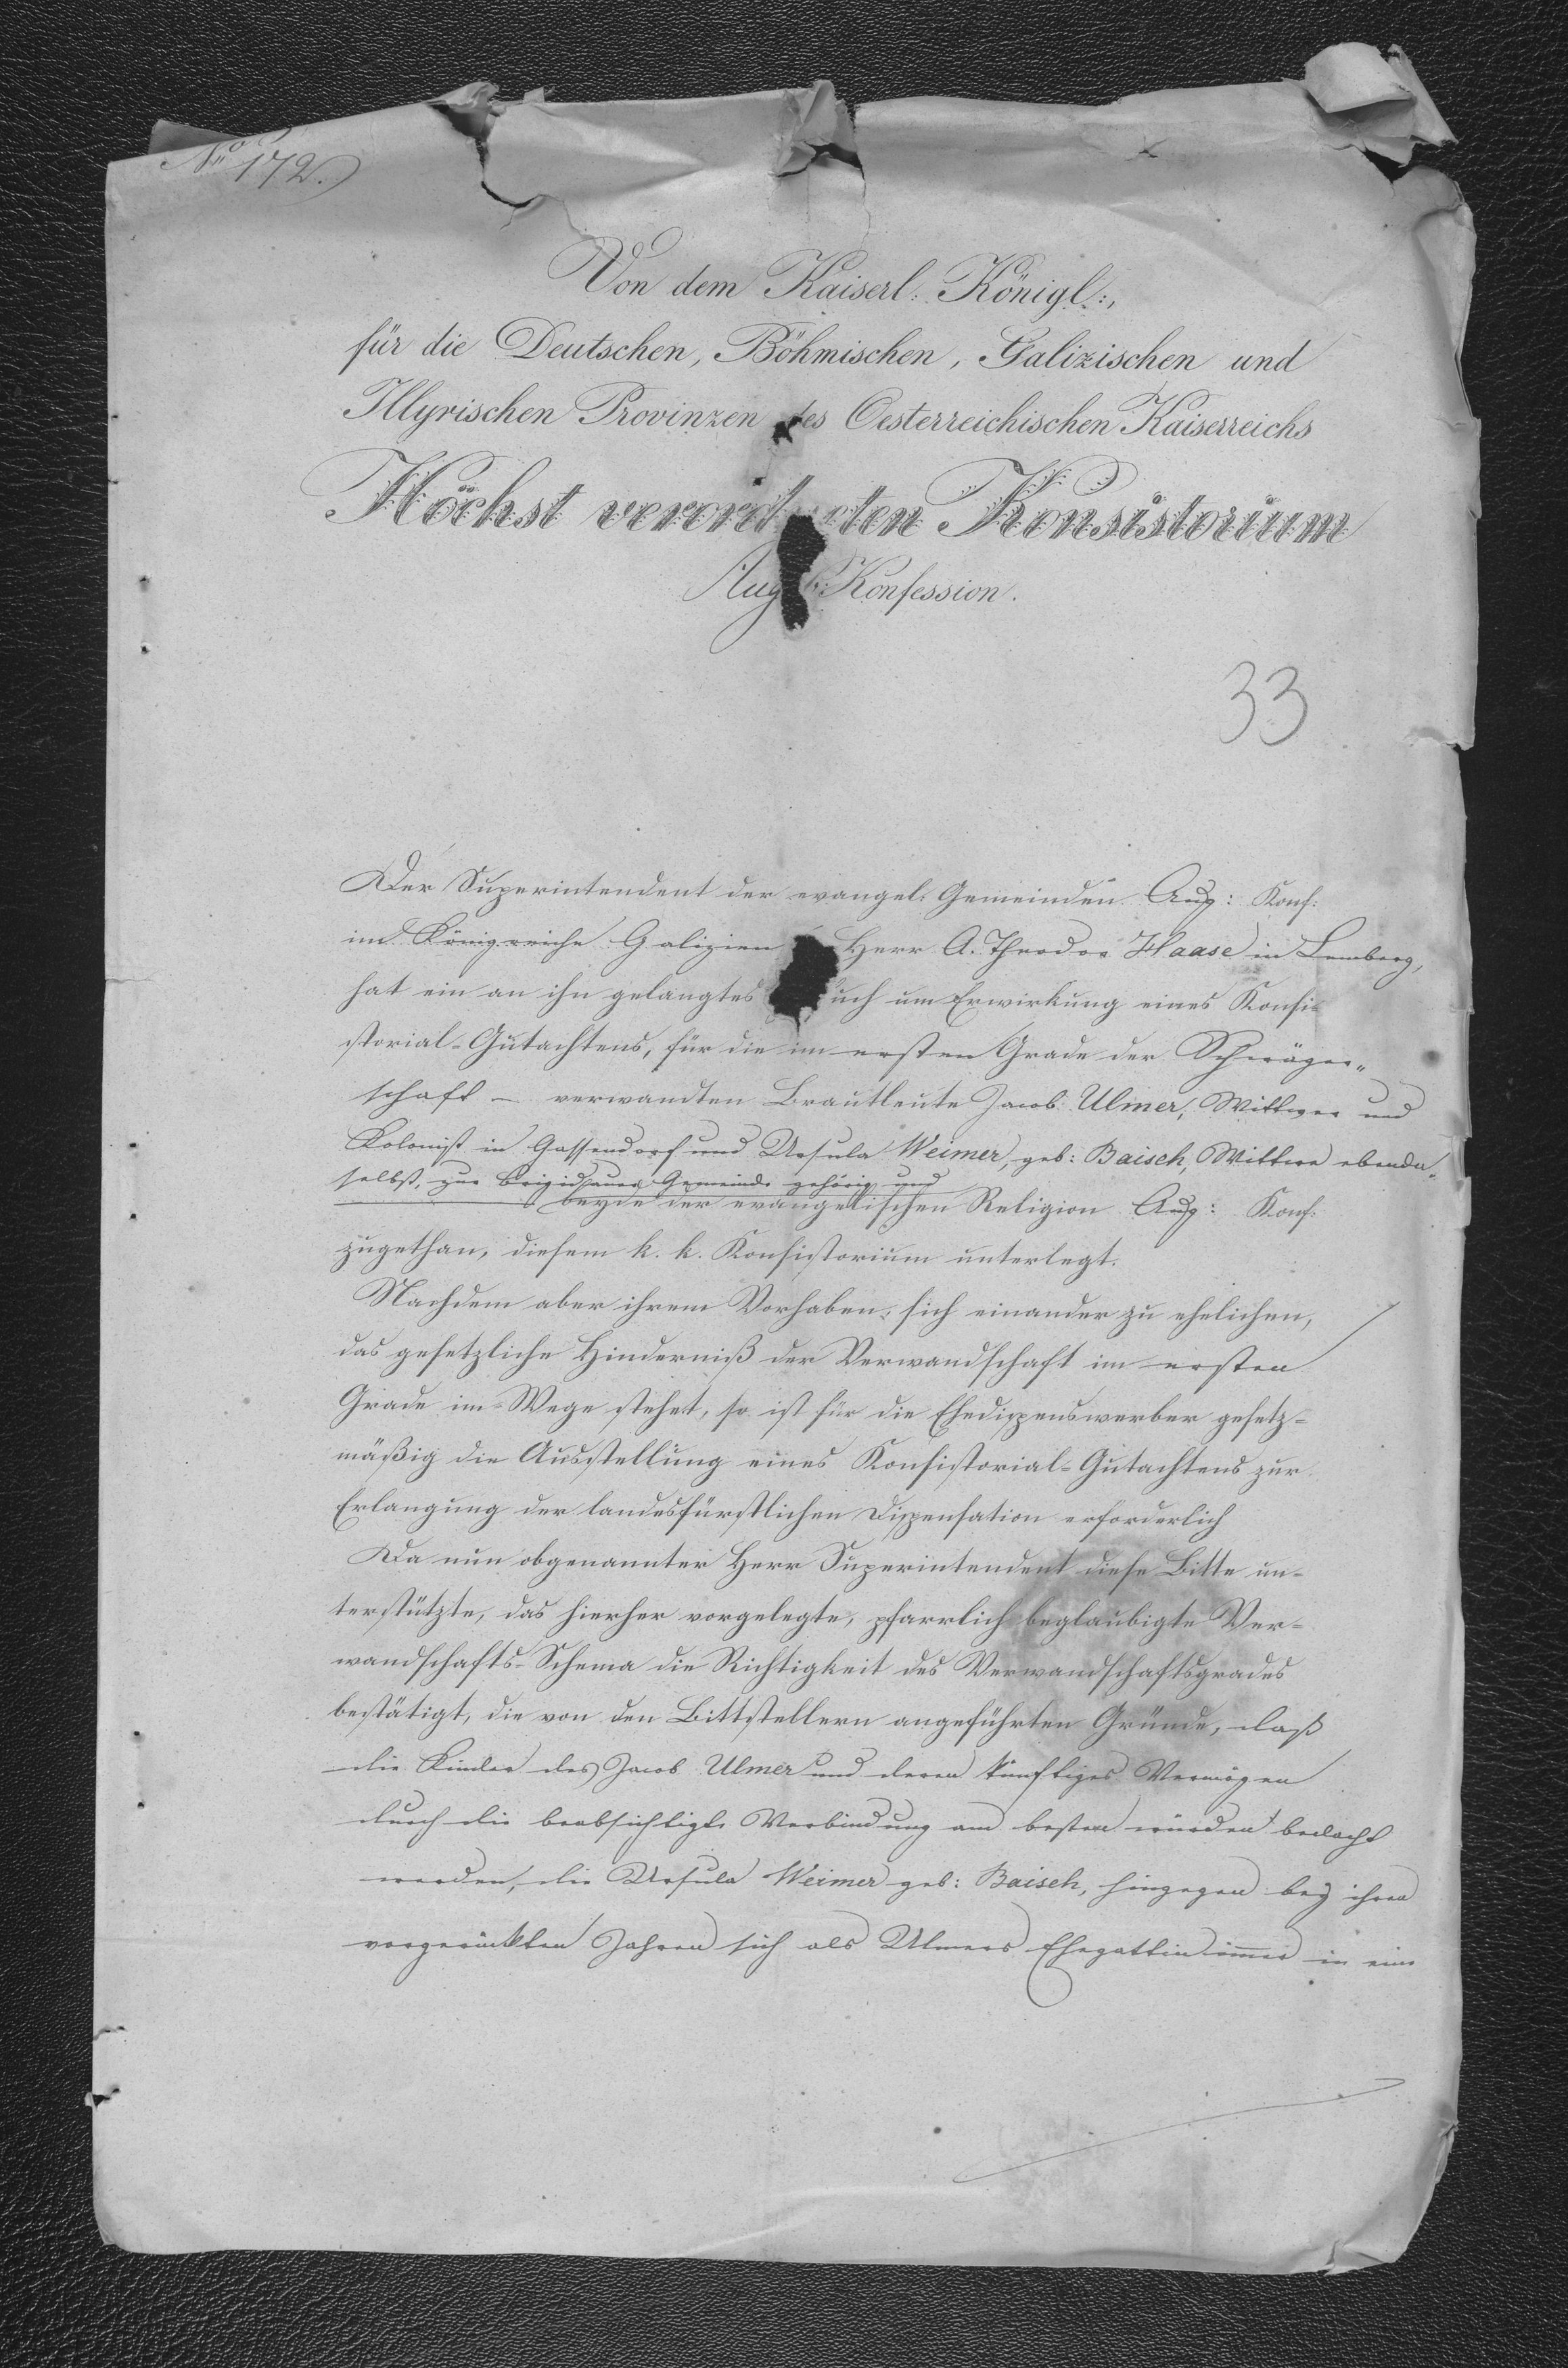 No 172.
Von dem Kaiserl: Königl:,
für die Deutschen, Böhmischen, Galizischen und
Illyrischen Provinzen des Oesterreichischen Kaiserreichs
Höchst verord ten Konsistorium
Aug Konfession.
33
Der Superintendent der evangel: Gemeinden Aug: Konf:
im Königreiche Galizien Herr A. Theodor Haase in Lemberg,
hat ein an ihn gelangtes uch um Erwirkung eines Konsi-
storial-Gutachtens, für die im ersten Grade der Schwäger-
schaft - verwandten Brautleute Jacob Ulmer, Wittwer und
Kolonist in Gassendorf und Ursula Weimer, geb: Baisch, Wittwe ebenda-
selbst, zur Brigidauer Gemeinde gehörig und
beyde der evangelischen Religion Aug: Konf:
zugethan, diesem k. k. Konsistorium unterlegt.
Nachdem aber ihrem Vorhaben, sich einander zu ehelichen,
das gesetzliche Hinderniß der Verwandschaft im ersten
Grade im Wege stehet, so ist für die Ehedispenswerber gesetz-
mäßig die Ausstellung eines Konsistorial-Gutachtens zur
Erlangung der landesfürstlichen Dispensation erforderlich
Da nun obgenannter Herr Superintendent diese Bitte un-
terstützte, das hierher vorgelegte, pfarrlich beglaubigte Ver-
wandschafts-Schema die Richtigkeit des Verwandschaftsgrades
bestätigt, die von den Bittstellern angeführten Gründe, daß
die Kinder des Jacob Ulmer und deren künftiges Vermögen
durch die beabsichtigte Verbindung am besten würden bedacht
werden, die Ursula Weimer geb: Baisch, hingegen bey ihren
vorgerückten Jahren sich als Ulmers Ehegattin immer in eine